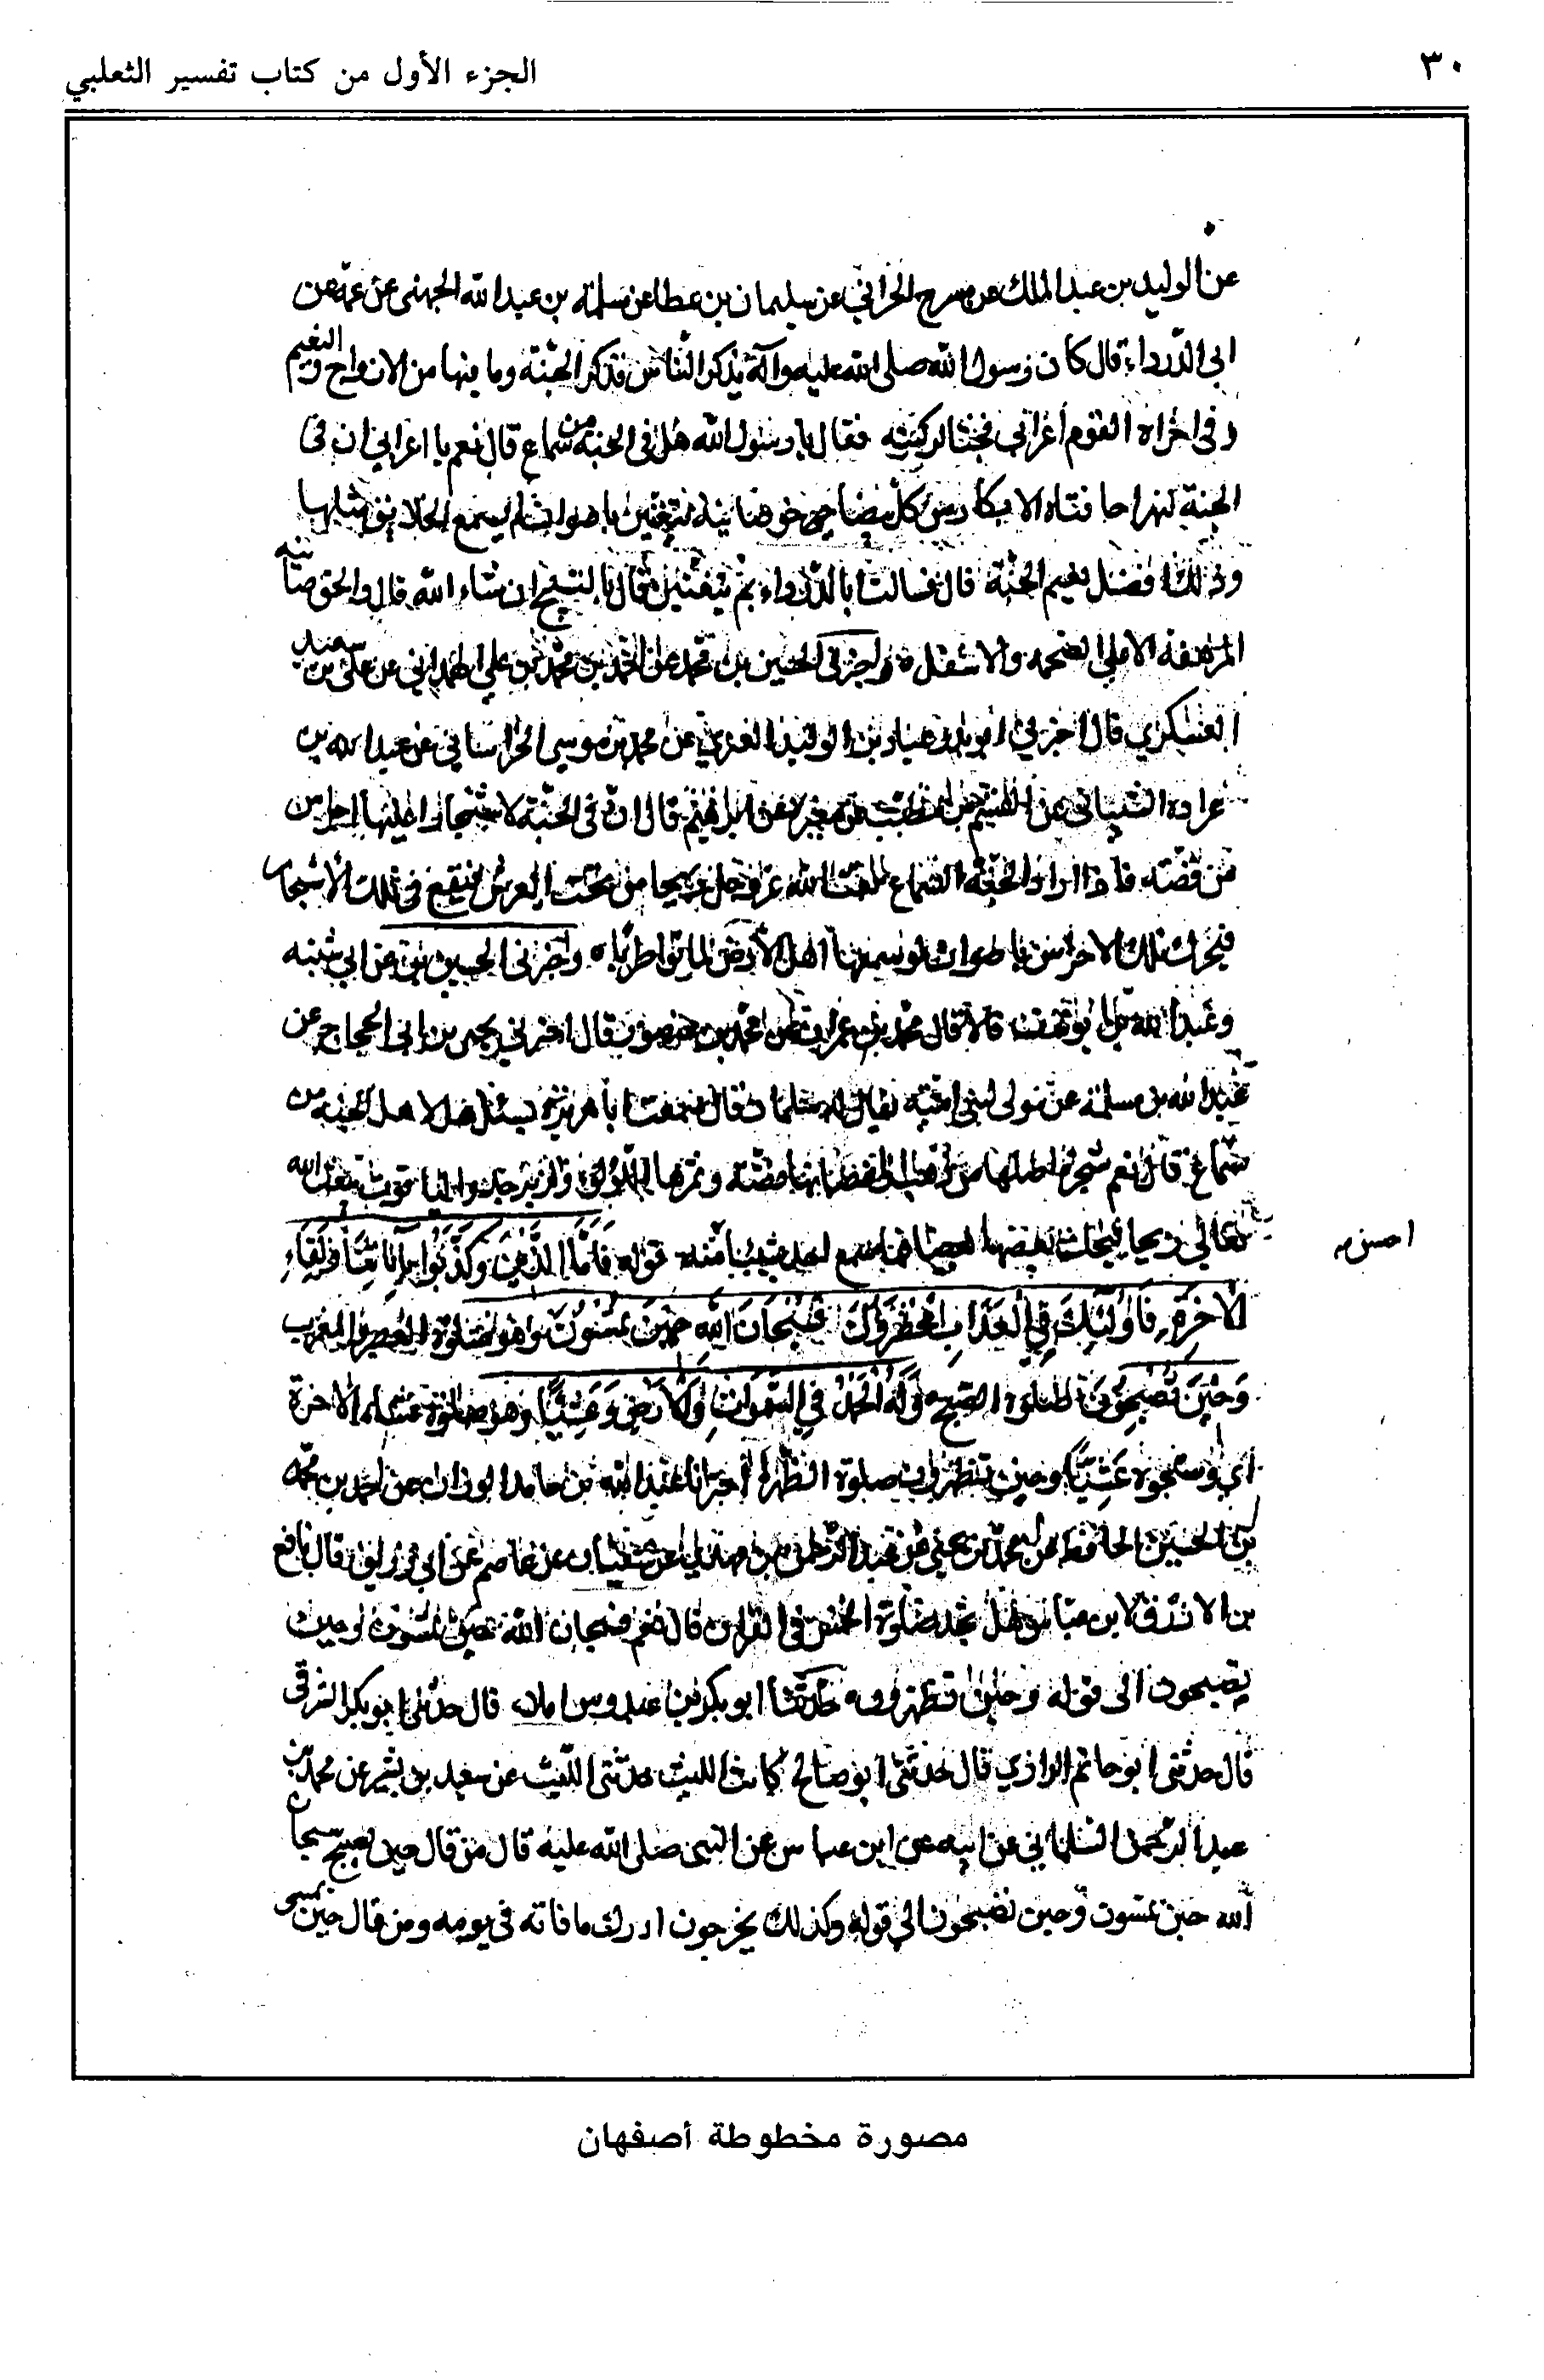 ٣٠
الجزء الأول من كتاب تفسير الثعلبي
عن الوليد بن عبد الملك عن مسرح الحراني عن سليمان بن عطا عن سلمة بن عبد الله الجهنى عن عمه عن
ابى الدرداء قال كان رسول الله صلى الله عليه وآله يذكر الناس فذكر الجنة وما فيها من الازواج والنعيم
وفى اخراه القوم أعرابى فجثا لركبتيه فقال يا رسول الله هل فى الجنة من سماع قال نعم يا اعرابي ان فى
الجنة لنهرا حافتاه الابكار من كل بيضاء خوصانية يتغنين باصوات لم يسمع الخلايق مثلها
وذلك افضل نعيم الجنة قال فسالت ابا الدرداء بم يتغنين قال بالتسبيح ان شاء الله قال والخوصانيه
المرهفة الاعلى الضخمه الاسفل واخبرنى الحسين بن محمد عن احمد بن محمد بن علي الهمداني عن على بن سعيد
العسكري قال اخبرني ابو بدر عباد بن الوليد الغبري عن محمد بن موسى الخراسانى عن عبد الله بن
عرادة الشيبانى عن القسم بن مطيب عن مغيرة عن ابراهيم قال ان فى الجنة لاشجارا عليها اجراس
من فضة فاذا اراد اهل الجنة السماع بعث الله عز وجل ريحا من تحت العرش فتقع فى تلك الاشجار
فتحرك تلك الاجراس باصوات لو سمعها اهل الارض لماتوا طربا واخبرنى الحسين عن ابي شيبه
وعبد الله بن يوسف قالا قال محمد بن عمران عن محمد بن منصور قال اخبرني يحيى بن ابى الحجاج عن
عبد الله بن مسلمة عن مولى لبنى امية يقال له سليمان قال سمعت ابا هريرة يسئل هل لاهل الجنة من
سماع قال نعم شجرة اصلها من ذهب واغصانها فضة وثمرها اللؤلؤ والزبرجد والياقوت يبعث الله
تعالى ريحا فيحك بعضها بعضا فما سمع احد شيئا منه قوله فَأَمَّا الَّذِينَ وَكَذَّبُوا بِآيَاتِنَا وَلِقَاءِ
احسن
الْآخِرَةِ فَأُولَٰئِكَ فِي الْعَذَابِ مُحْضَرُونَ فَسُبْحَانَ اللَّهِ حِينَ تُمْسُونَ وهو صلوة العصر والمغرب
وَحِينَ تُصْبِحُونَ صلوة الصبح وَلَهُ الْحَمْدُ فِي السَّمَوَاتِ وَالْأَرْضِ وَعَشِيًّا وهو صلوة عشاء الاخرة
اي وسبحوه عَشِيًّا وحين تظهرون صلوة الظهر أخبرنا عبد الله بن حامد الوزان عن احمد بن محمد
بن الحسين الحافظ عن محمد بن يحيى عن عبد الرحمن بن مهدي عن سفيان عن عاصم عن ابي رزين قال نافع
بن الازرق لابن عباس هل تجد صلوة الخمس فى القران قال نعم فسبحان الله حين تمسون وحين
تصبحون الى قوله وحين تظهرون حدثنا ابو بكر بن عبدوس املاء قال حدثنى ابو بكر الشرقى
قال حدثنى ابو حاتم الرازي قال حدثنى ابو صالح كاتب الليث حدثنى الليث عن سعيد بن بشير عن محمد بن
عبد الرحمن السلمانى عن ابيه عن ابن عباس عن النبى صلى الله عليه قال من قال حين يصبح سبحان
الله حين تمسون وحين تصبحون الي قوله وكذلك يخرجون ادرك ما فاته فى يومه ومن قال حين يمسى
مصورة مخطوطة أصفهان